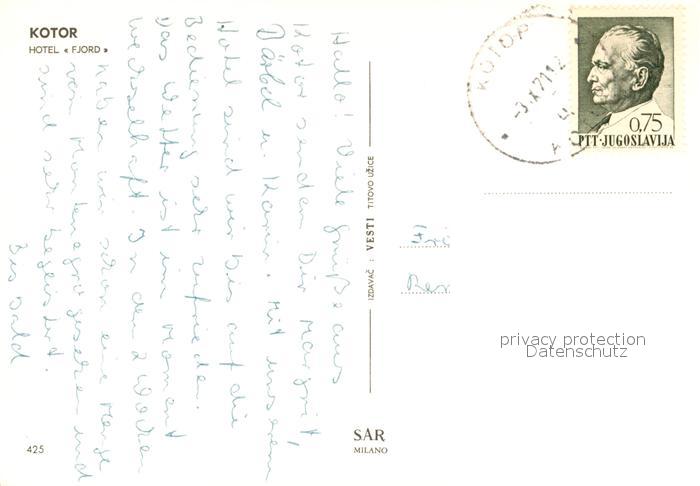 KOTOR
HOTEL « FJORD »
Hallo! Viele Grüße aus
Kotor senden Dir Margrit,
Bärbel u. Karin. Mit unserem
Hotel sind wir bis auf die
Bedienung sehr zufrieden.
Das Wetter ist im Moment
wechselhaft. In den 2 Wochen
haben wir schon eine Menge
von Montenegro gesehen und
sind sehr begeistert.
Bis bald
425
IZDAVAČ : VESTI TITOVO UŽICE
SAR
MILANO
KOTOR
-3.X.71.12
0,75
PTT·JUGOSLAVIJA
privacy protection
Datenschutz